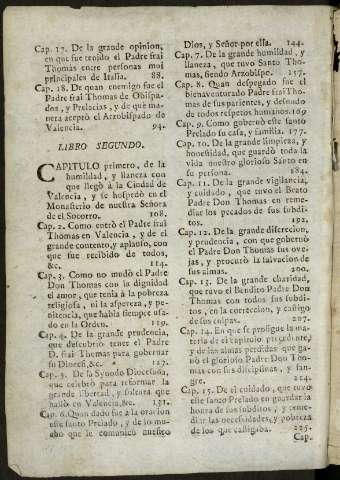 Cap. 17. De la grande opinion,
en que fue tenido el Padre frai
Thomas entre personas mui
principales de Italia. 88.
Cap. 18. De quan comigo fue el
Padre frai Thomas de Obispa-
dos, y Prelacias, y de què ma-
nera aceptò el Arzobispado de
Valencia. 94.
LIBRO SEGUNDO.
CAPITULO primero, de la
humildad, y llaneza con
que llegò à la Ciudad de
Valencia, y se hospedò en el
Monasterio de nuestra Señora
de el Socorro. 108.
Cap. 2. Como entrò el Padre frai
Thomas en Valencia, y de el
grande contento, y aplauso, con
que fue recibido de todos,
&c. 114.
Cap. 3. Como no mudò el Padre
Don Thomas con la dignidad
el amor, que tenia à la pobreza
religiosa, ni la aspereza, y pe-
nitencia, que habia siempre usa-
do en la Orden. 119.
Cap. 4. De la grande prudencia,
que descubriò tener el Padre
D. frai Themas para gobernar
su Diocesi, &c. 127.
Cap. 5. De la Synodo Diocesana,
que celebrò para reformar la
grande libertad, y soltura que
hallò en Valencia, &c. 131.
Cap. 6. Quan dado fue à la oracion
este santo Prelado, y de lo mu-
cho que le comunicò nuestro
Dios, y Señor por ella. 144.
Cap. 7. De la grande humildad, y
llaneza, que tuvo Santo Tho-
mas, siendo Arzobispo. 157.
Cap. 8. Quan despegado fue el
bienaventurado Padre frai Tho-
mas de sus parientes, y desnudo
de todos respetos humanos. 169
Cap. 9. Como gobernò este santo
Prelado su casa, y familia. 177.
Cap. 10. De la grande limpieza, y
honestidad, que guardò toda la
vida nuestro glorioso Santo en
su persona. 184.
Cap. 11. De la grande vigilancia,
y cuidado, que tuvo el Beato
Padre Don Thomas en reme-
diar los pecados de sus subdi-
tos. 192.
Cap. 12. De la grande discrecion,
y prudencia, con que gobernò
el Padre Don Thomas sus ove-
jas, y procurò la salvacion de
sus almas. 200.
Cap. 13. De la grande charidad,
que tuvo el Bendito Padre Don
Thomas con todos sus subdi-
tos, en la correccion, y castigo
de sus culpas. 207.
Cap. 14. En que se prosigue la ma-
teria de el capitulo precedente,
y de las almas perdidas que ga-
nò el glorioso Padre Don Tho-
mas con sus disciplinas, y san-
gre. 214.
Cap. 15. De el cuidado, que tuvo
este santo Prelado en guardar la
honra de sus subditos, y reme-
diar las necesidades, y pobreza
de los que castigaba. 225.
Cap.